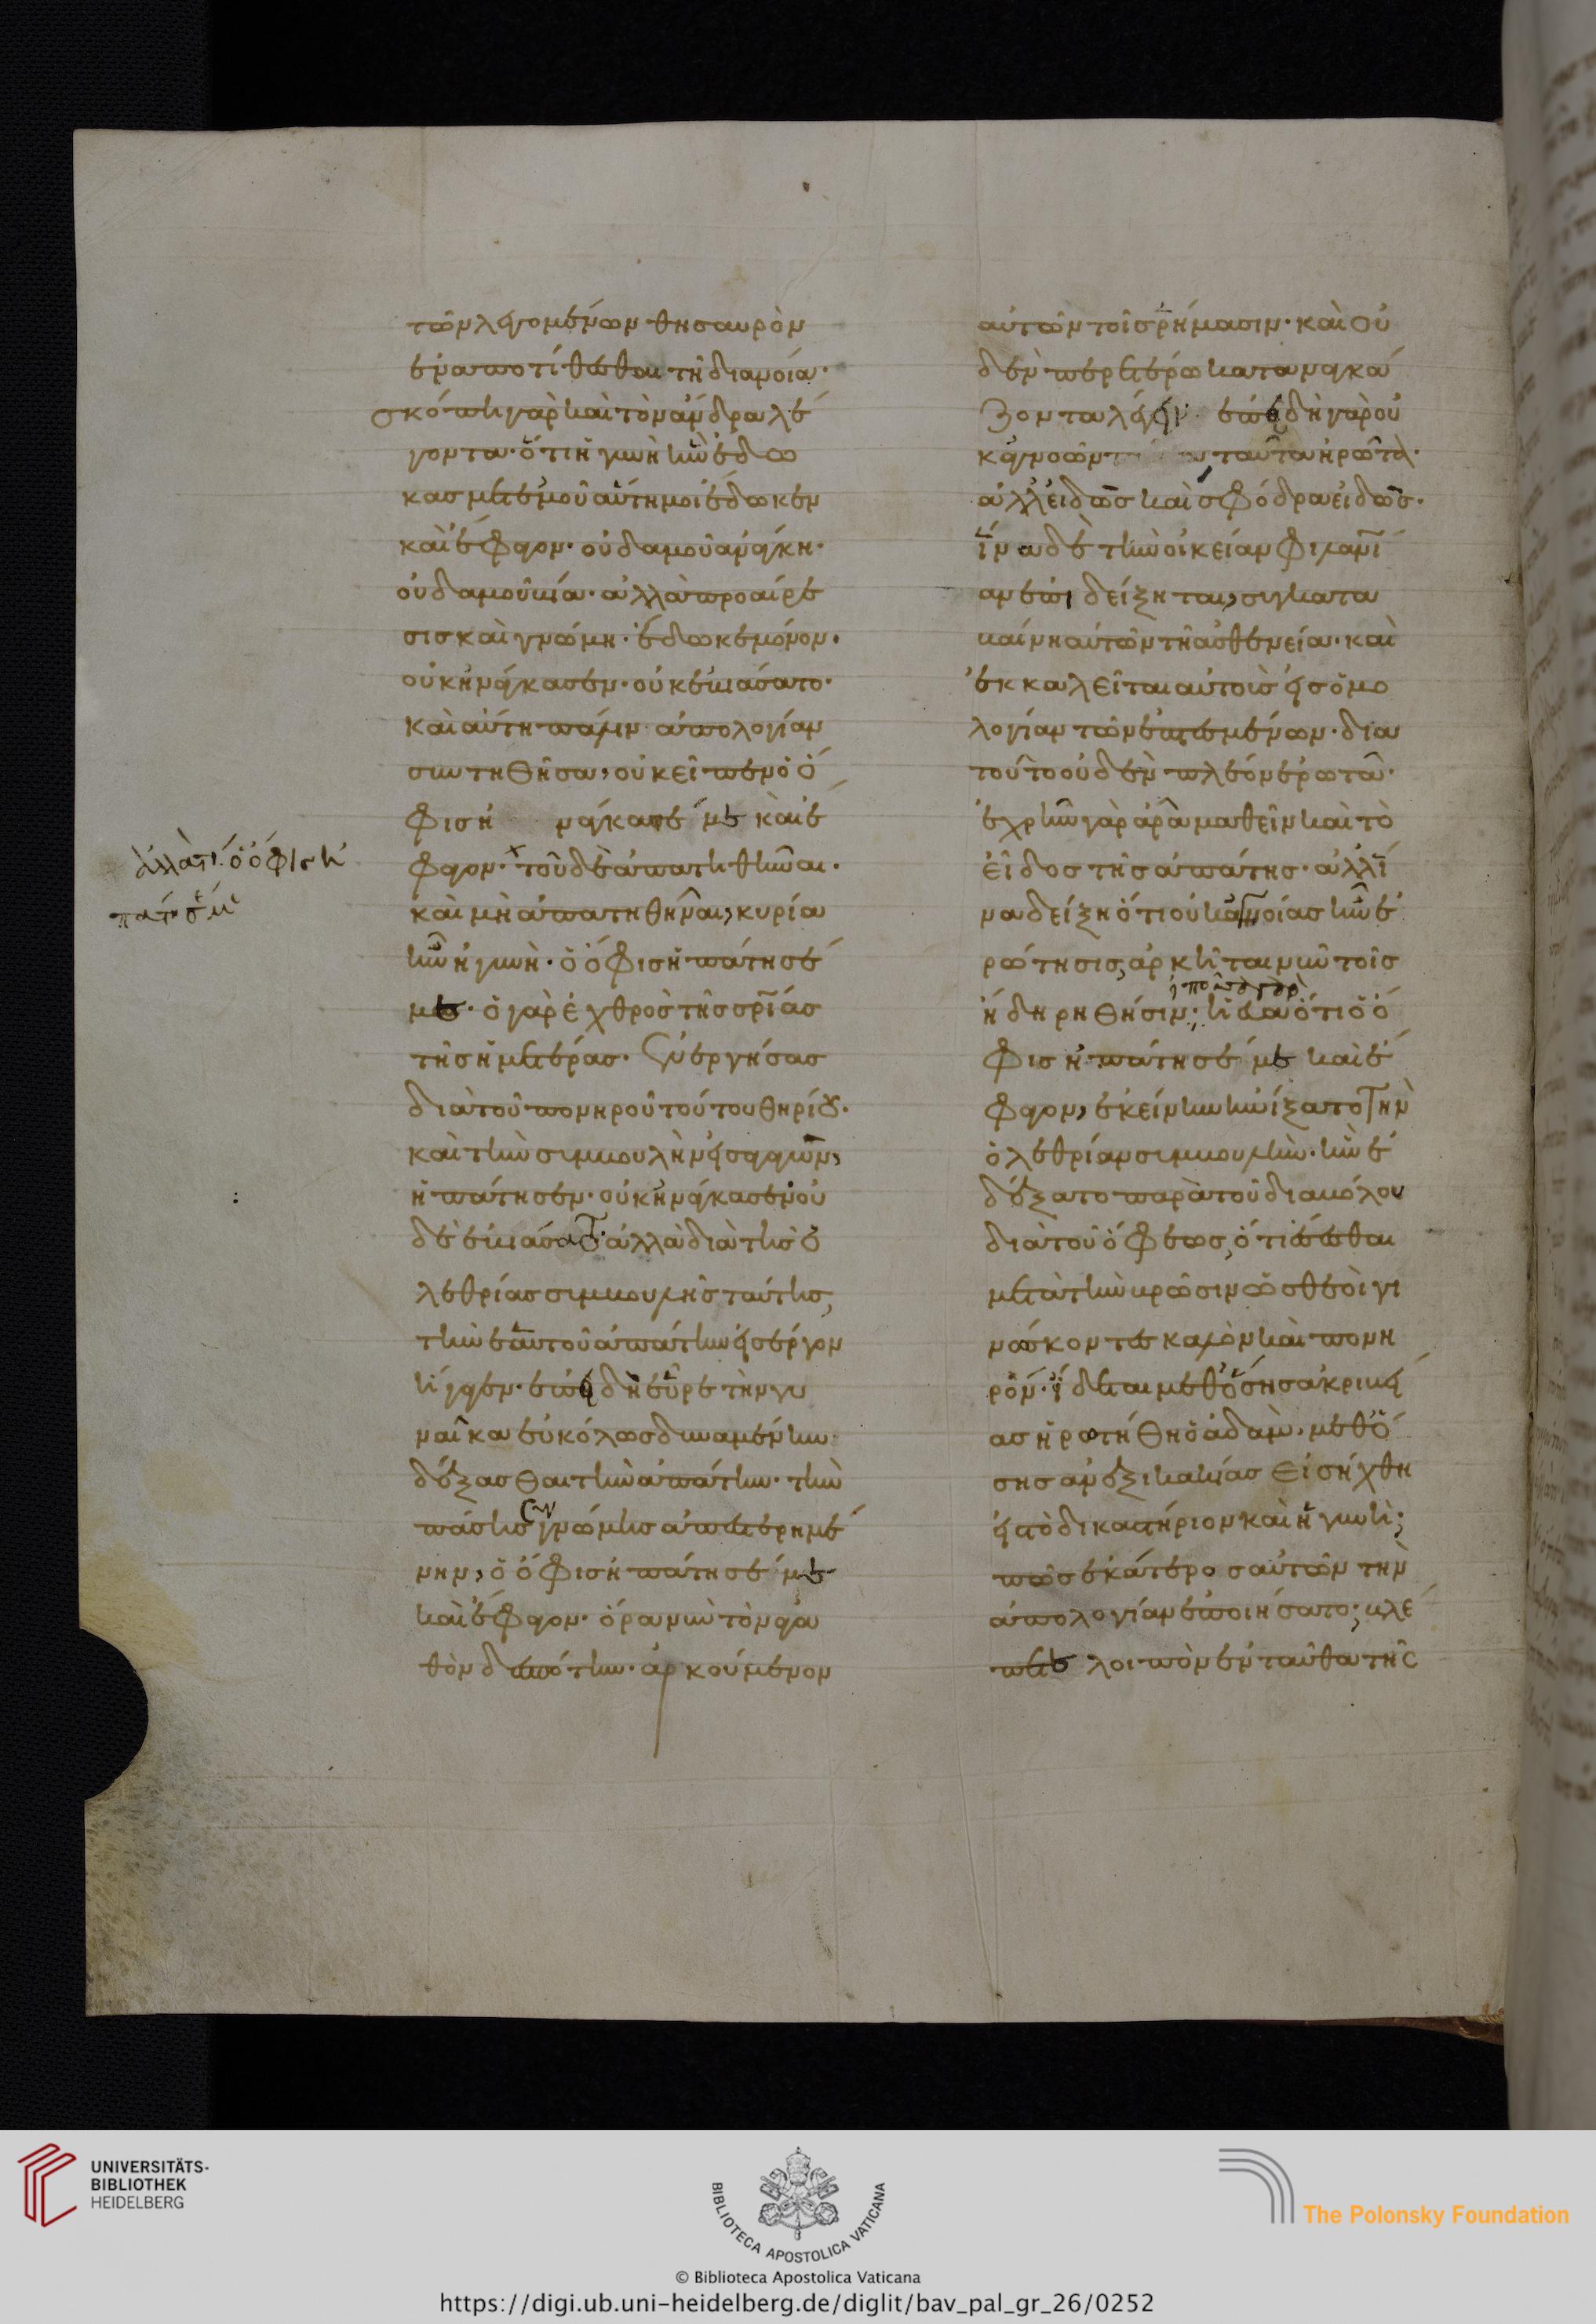 τῶν λεγομένων θησαυρὸν
ἐναποτίθεσθαι τῇ διανοίᾳ·
σκόπει γὰρ καὶ τὸν ἄνδρα λέ
γοντα· ὅτι ἡ γυνὴ ἣν ἔδω
κας μετ' ἐμοῦ αὕτη μοι ἔδωκεν
καὶ ἔφαγον· οὐδαμοῦ ἀνάγκη·
οὐδαμοῦ βία· ἀλλὰ προαίρε
σις καὶ γνώμη· ἔδωκε μόνον·
οὐκ ἠνάγκασεν· οὐκ ἐβιάσατο·
καὶ αὐτὴ πάλιν ἀπολογίαν
συντιθεῖσα, οὐκ εἶπεν ὁ ὄ
φις ἠ νάγκασέ με καὶ ἔ
φαγον· τοῦ δὲ ἀπατηθῆναι·
καὶ μὴ ἀπατηθῆναι, κυρία
ἦν ἡ γυνή· ὁ ὄφις ἠπάτησέ
με· ὁ γὰρ ἐχθρὸς τῆς σρίας
τῆς ἡμετέρας· ἐνεργήσας
διὰ τοῦ πονηροῦ τούτου θηρίου·
καὶ τὴν συμβουλὴν εἰσαγαγὼν,
ἠπάτησεν· οὐκ ἠνάγκασεν οὐ
δὲ ἐβιάσατο· ἀλλὰ διὰ τῆς ὀ
λεθρίας συμβουλῆς ταύτης,
τὴν ἑαυτοῦ ἀπάτην εἰς ἔργον
ἤγαγεν· ἐπειδὴ εὗρε τὴν γυ
ναῖκα εὐκόλως δυναμένην
δέξασθαι τὴν ἀπάτην· τὴν
πάσης γνώμης ἀπεστερημέ
νην, ὁ ὄφις ἠπάτησέ με
καὶ ἔφαγον· ὅρα νῦν τὸν ἀγα
θὸν δεσπότην· ἀρκούμενον
ἀλλὰ τί· ὁ ὄφις ἠ
πάτησέ με
αὐτῶν τοῖς ῥήμασιν· καὶ οὐ
δὲν περαιτέρω καταναγκά
ζοντα λέγειν· ἐπειδὴ γὰρ οὐ
κ ἀγνοῶν ταῦτα ἠρώτα·
ἀλλ' εἰδὼς καὶ σφόδρα εἰδώς·
ἵνα δὲ τὴν οἰκείαν φιλανί
αν ἐπιδείξηται, συγκατα
βαίνει αὐτῶν τῇ ἀσθενείᾳ· καὶ
ἐκκαλεῖται αὐτοὺς εἰς ὁμο
λογίαν τῶν ἐπταισμένων· δια
τοῦτο οὐδὲν πλέον ἐρωτᾷ·
ἐχρῆν γὰρ ἄρα μαθεῖν καὶ τὸ
εἶδος τῆς ἀπάτης· ἀλλ' ἵ
να δείξῃ ὅτι οὐκ ἀγνοίας ἦν ἐ
ρώτησις, ἀρκεῖται νῦν τοῖς
ἤδη ῥηθεῖσιν· εἰποῦσα γὰρ ὅτι ὁ ὄ
φις ἠπάτησέ με καὶ ἔ
φαγον, ἐκείνην ᾐνίξατο τὴν
ὀλεθρίαν συμβουλήν· ἣν ἐ
δέξατο παρὰ τοῦ διαβόλου
διὰ τοῦ ὄφεως, ὅτι ἔσεσθαι
μετὰ τὴν βρῶσιν ὡς θεοὶ γι
νώσκοντες καλὸν καὶ πονη
ρόν· εἴδεται μεθ' ὅσης ἀκριβεί
ας ἠρωτήθη ὁ ἀδὰμ· μεθ' ὅ
σης ἀνεξικακίας εἰσήχθη
εἰς τὸ δικαστήριον καὶ ἡ γυνή;
πῶς ἑκάτερος αὐτῶν τὴν
ἀπολογίαν ἐποιήσατο; βλέ
πετε λοιπὸν ἐνταῦθα τῆς
UNIVERSITÄTS-
BIBLIOTHEK
HEIDELBERG
BIBLIOTECA APOSTOLICA VATICANA
The Polonsky Foundation
© Biblioteca Apostolica Vaticana
https://digi.ub.uni-heidelberg.de/diglit/bav_pal_gr_26/0252